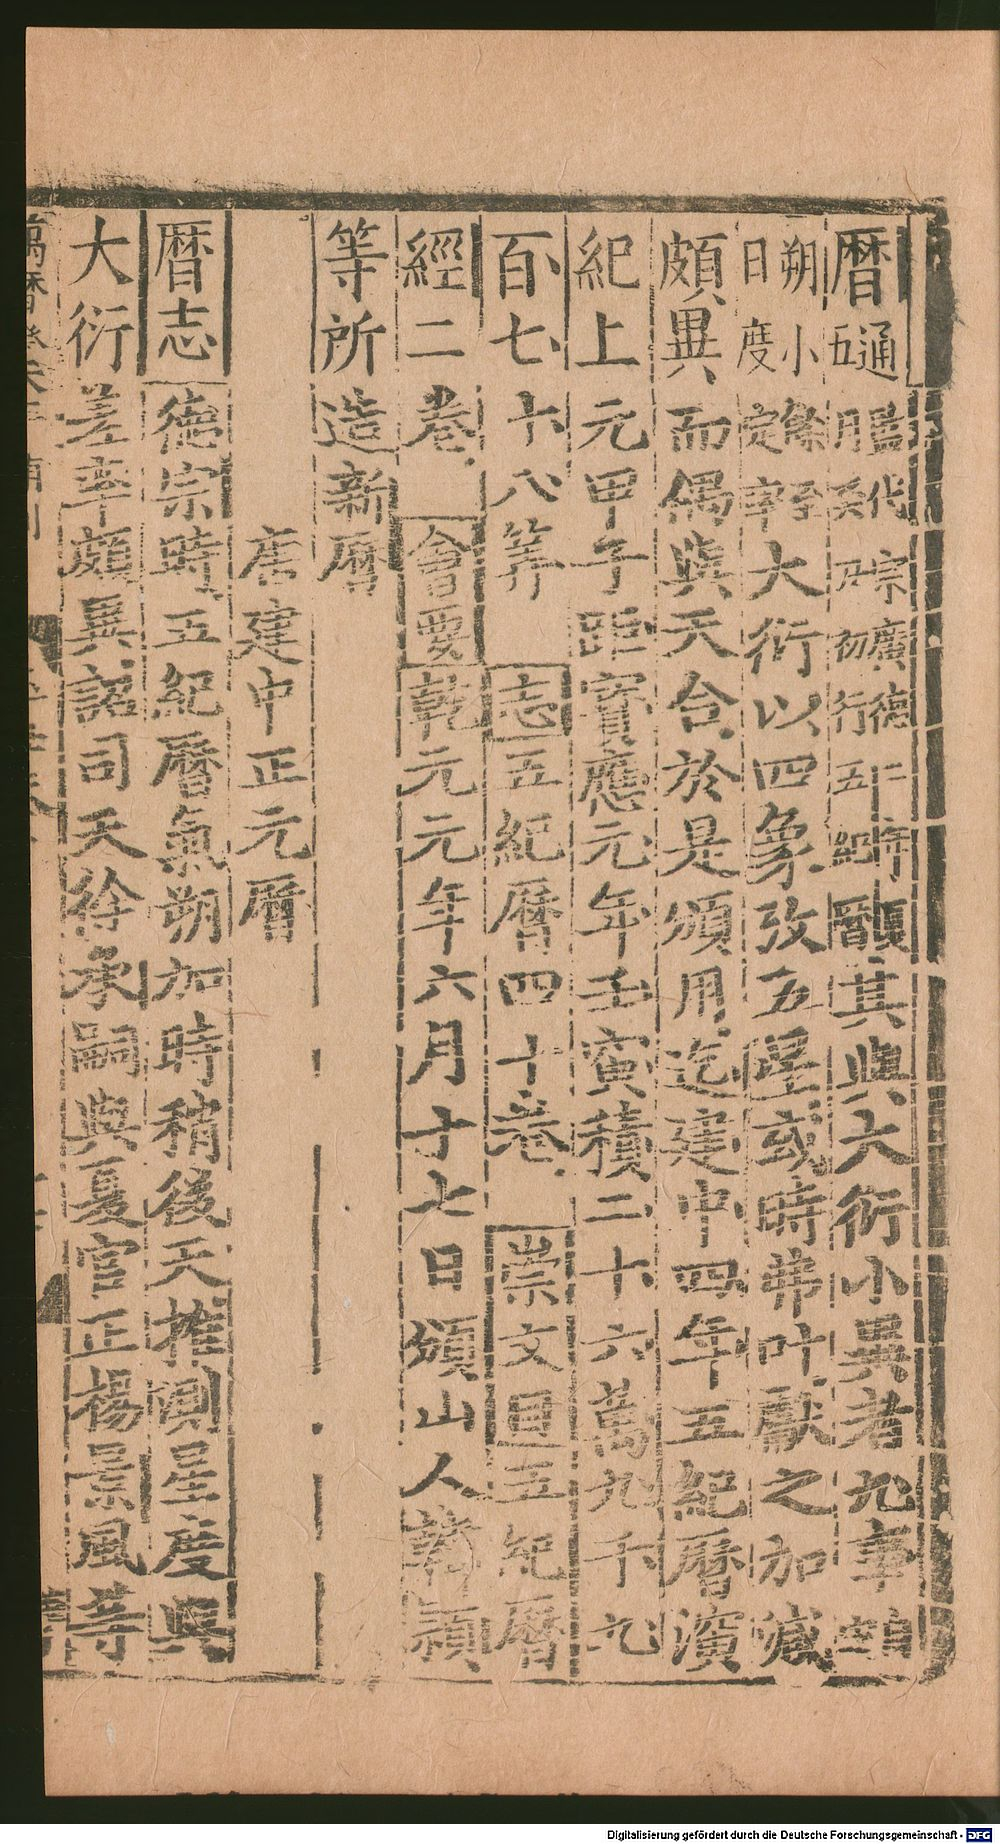 暦通鑑代宗廣德二年夏五月癸丑初行五紀暦其與大衍小異者九事
朔小餘至日度定率大衍以四象攷五星或時弗叶獻之加減
頗異而偶與天合於是頒用迄建中四年五紀暦
紀上元甲子距寶應元年壬寅積二十六萬九千九
百七十八筭志五紀暦四十卷崇文目五紀暦
經二卷會要乾元元年六月十七日頒山人韓穎
等所造新暦
唐建中正元暦
暦志德宗時五紀暦氣朔加時稍後天推測星度與
大衍差率頗異詔司天徐承嗣與夏官正楊景風等
Digitalisierung gefördert durch die Deutsche Forschungsgemeinschaft - DFG